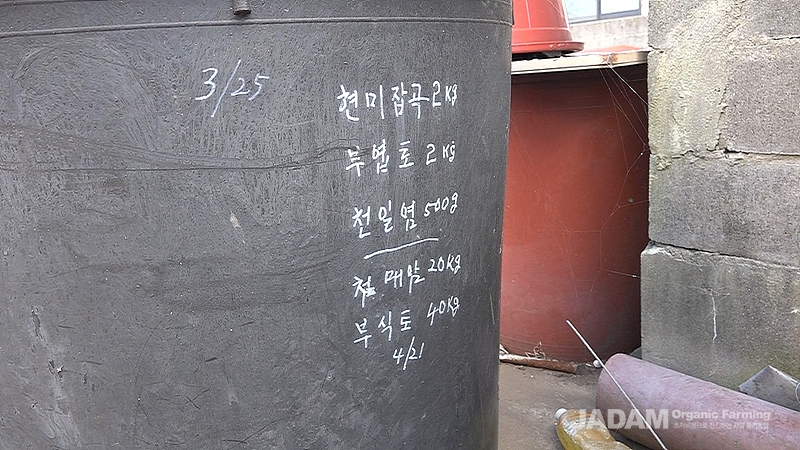 3/25
현미잡곡 2kg
부엽토 2kg
천일염 500g
천매암 20kg
부식토 40kg
4/21
JADAM Organic Farming